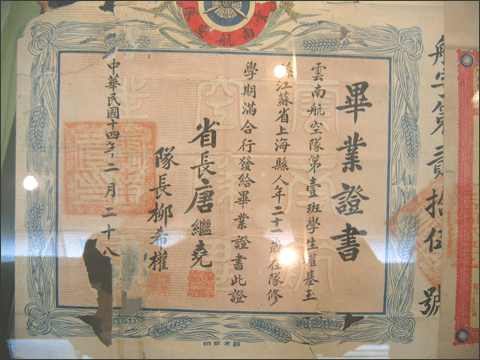 航字第貳拾伍號
畢業證書
雲南航空隊第壹班學生權基玉
江蘇省上海縣人年二十一歲在隊修
學期滿合行發給畢業證書此證
省長唐繼堯
隊長柳希權
中華民國十四年二月二十八